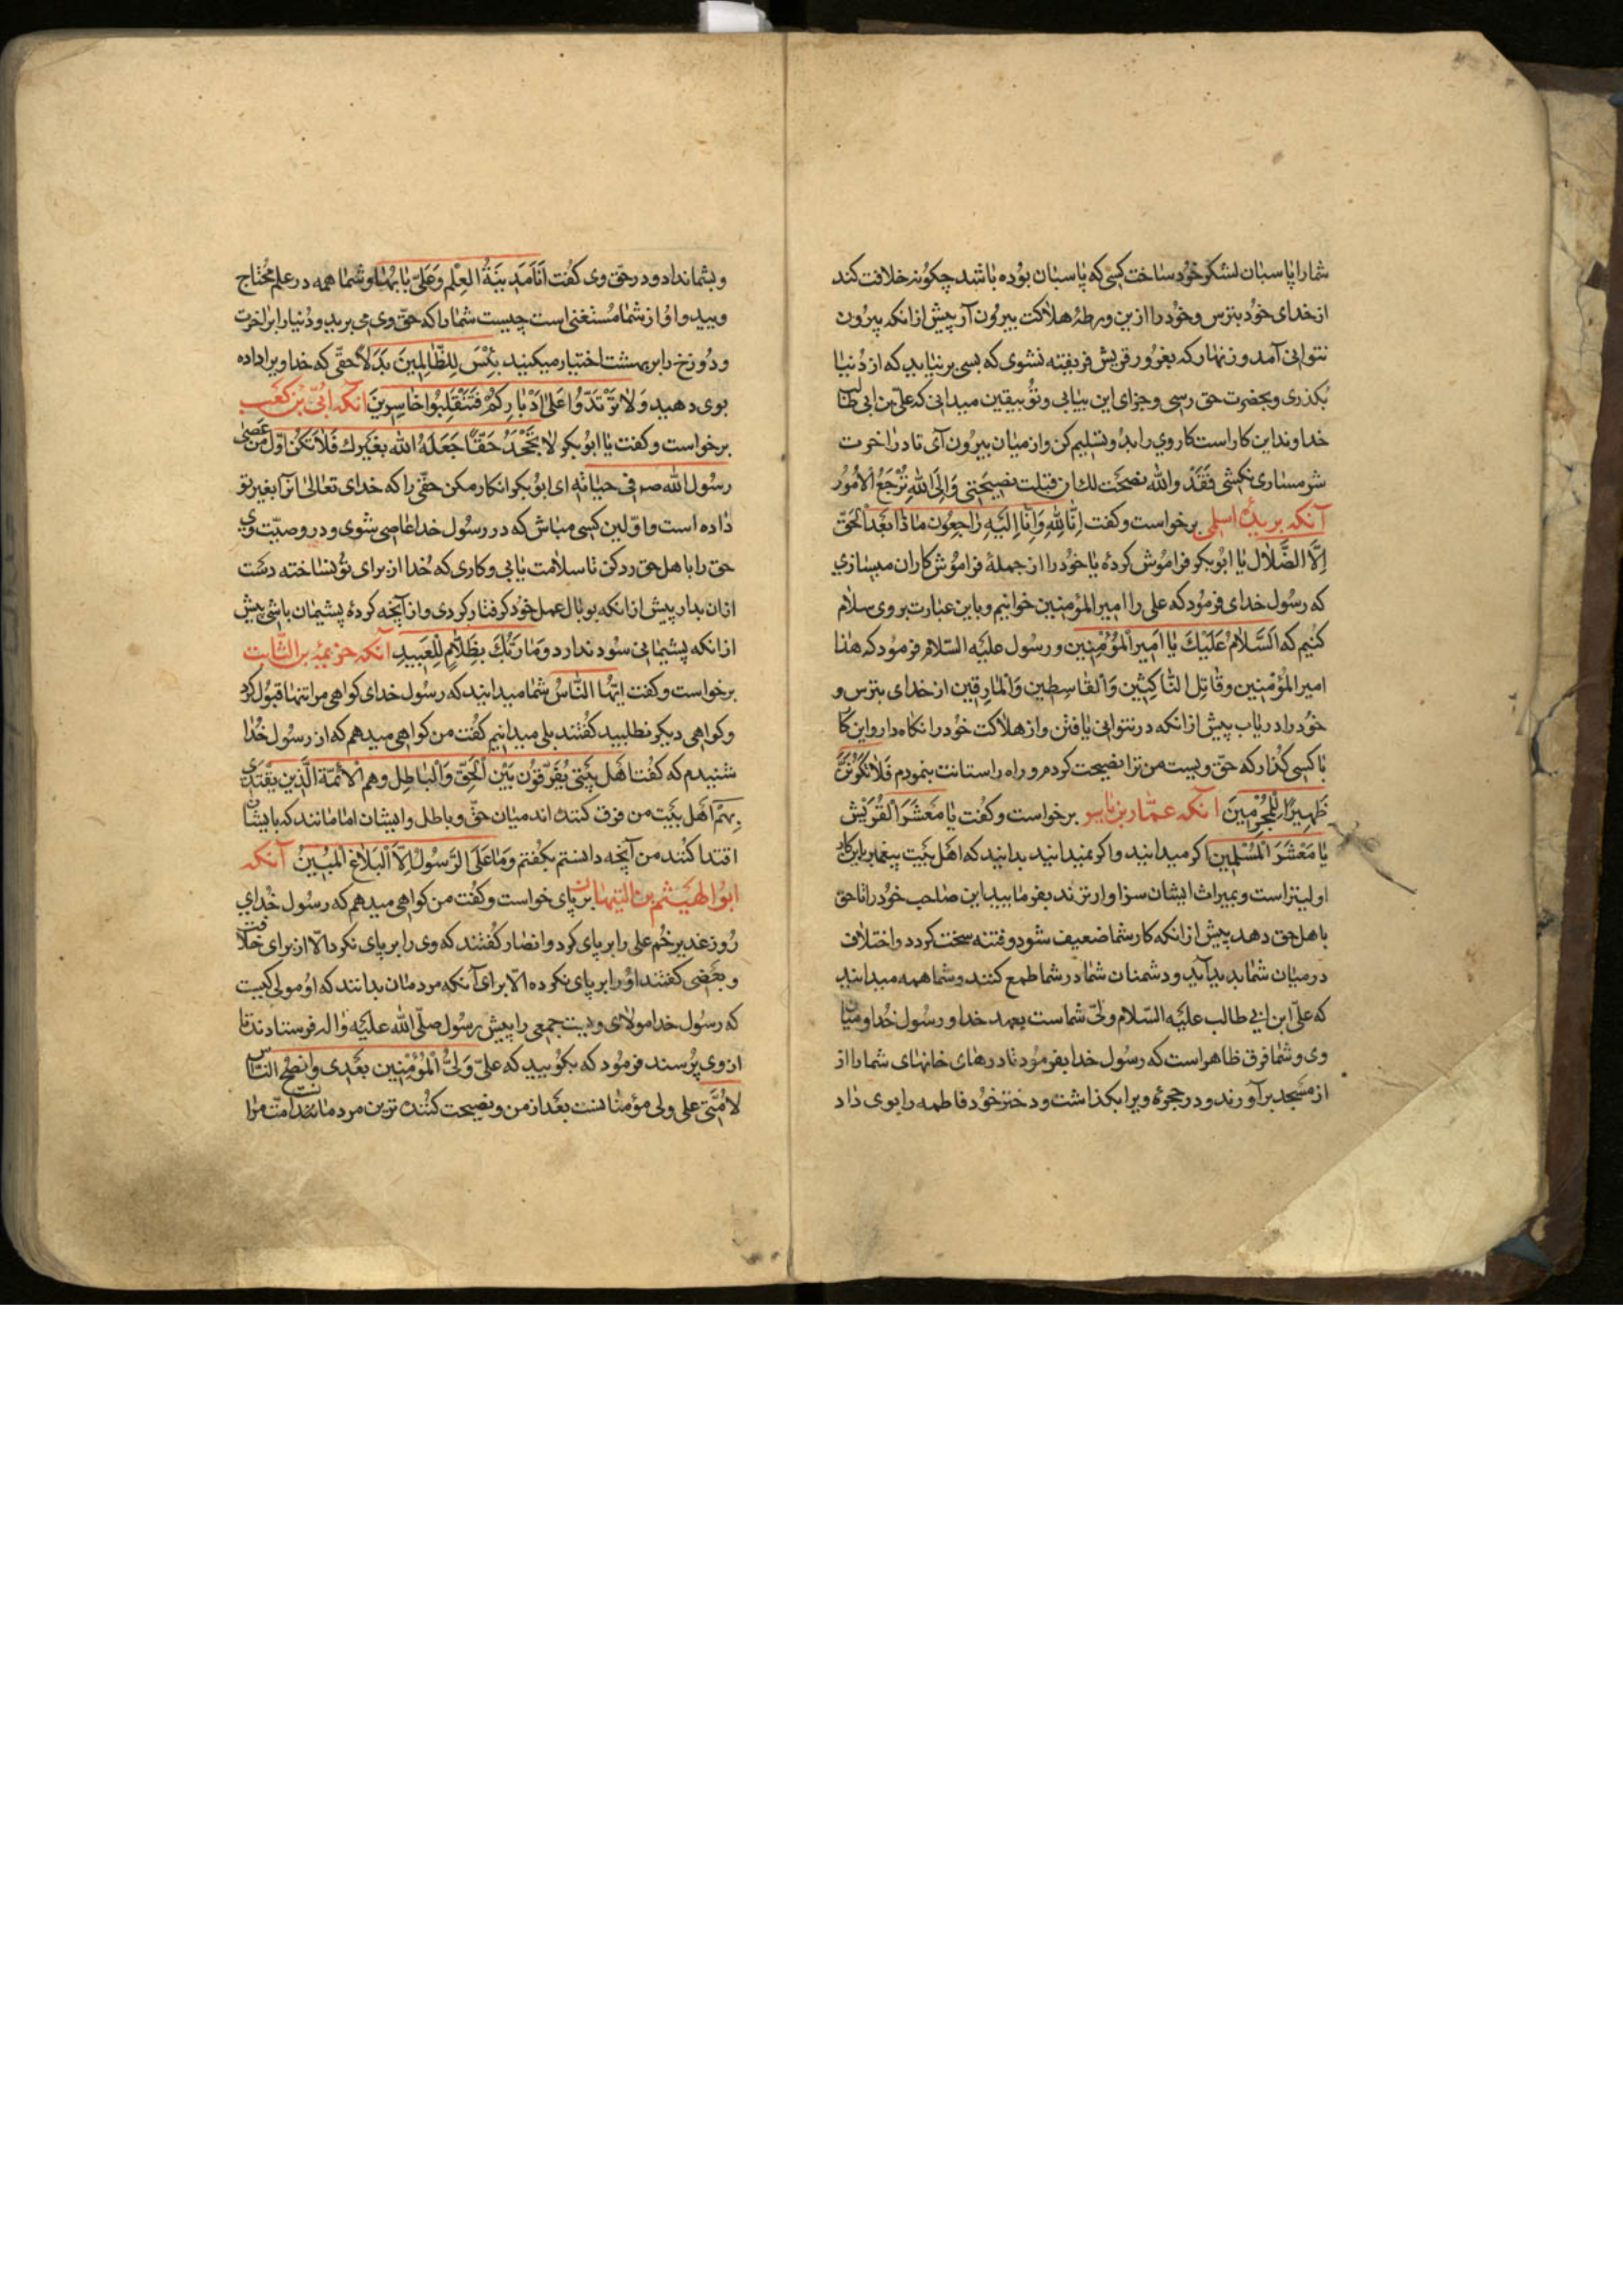 شما را پاسبان لشکر خود ساخت کسی که پاسبان بوده باشد چکونه خلافت کند
از خدای خود بترس و خود را ازین ورطهٔ هلاکت بیرون آر پیش از انکه بیرون
نتوانی آمد و زنهار که بغرور قریش فریفته نشوی که بسی بر نیاید که از دنیا
بکذری و بحضرت حق رسی و جزای این بیابی و تو بیقین میدانی که علی بن ابی طالب
خداوند این کار است کار وی را بدو تسلیم کن و از میان بیرون آی تا در آخرت
شرمساری نکشی فَقَدْ والله نصحت لك ان قبلت نصیحتی وَاِلَی اللهِ تُرْجَعُ الْاُمُورُ
آنکه بریدهٔ اسلمی برخواست و کفت اِنّا لِلّهِ وَاِنّا اِلَیْهِ رَاجِعُون مَاذَا بَعْدَ الْحَقّ
اِلَّا الضَّلَال یا ابو بکر فراموش کردهٔ یا خود را از جملهٔ فراموش کاران میسازی
که رسول خدای فرمود که علی را امیر المؤمنین خوانیم و باین عبارت بر وی سلام
کنیم که اَلسَّلَامُ عَلَیْكَ یَا اَمِیرَ الْمُؤْمِنِین و رسول علیه السّلام فرمود که هذا
امیر المؤمنین وقاتِل النّاکِثِین وَالْقَاسِطِین وَالْمَارِقِین از خدای بترس و
خود را دریاب پیش از انکه در نتوانی یافتن و از هلاکت خود را نکاه دار و این کا
با کسی کذار که حق ویست من ترا نصیحت کردم و راه راستانت بنمودم فَلَا تَکُونَنَّ
ظَهِیرًا لِلْمُجْرِمِینَ آنکه عمّار بن یاسر برخواست و کفت یا مَعْشَرَ الْقُرَیْش
یَا مَعْشَرَ الْمُسْلِمِین اکر میدانید و اکر نمیدانید بدانید که اهل بیت پیغمبر باین کار
اولیتر است و بمیراث ایشان سزاوارترند بفرمایید این صاحب خود را تا حق
باهل حق دهد پیش از انکه کار شما ضعیف شود و فتنه سخت کردد و اختلاف
در میان شما بدید آید و دشمنان شما در شما طمع کنند و شما همه میدانید
که علی ابن ابی طالب علیه السّلام ولیّ شماست بعهد خدا و رسول خدا و میان
وی و شما فرق ظاهر است که رسول خدا بفرمود تا درهای خانهای شما را از
از مسجد برآورند و در حجرهٔ ویرا بکذاشت و دختر خود فاطمه را بوی داد
و بشما نداد و در حق وی کفت اَنَا مَدِینَةُ الْعِلْمِ وَعَلِیّ بَابُهَا و شما همه در علم محتاج
ویید و او از شما مستغنی است چیست شما را که حق وی می برید و دنیا را بر آخرت
و دوزخ را بر بهشت اختیار میکنید بِئْسَ لِلظَّالِمِینَ بَدَلًا حقی که خدا ویرا داده
بوی دهید وَلَا تَرْتَدُّوا عَلَی اَدْبَارِکُمْ فَتَنْقَلِبُوا خَاسِرِینَ آنکه ابیّ بن کعب
برخواست و کفت یا ابو بکر لَا تَجْحَدْ حَقًّا جَعَلَهُ الله بغیرك فَلَا تَکُنْ اوّل مَنْ عَصَی
رسول الله صـ فی حیاته ای ابو بکر انکار مکن حقی را که خدای تعالی آنرا بغیر تو
داده است و اوّلین کسی مباش که در رسول خدا عاصی شوی و در وصیّت وی
حق را باهل حق رد کن تا سلامت یابی و کاری که خدا از برای تو نساخته دست
ازان بدار پیش از انکه بوبال عمل خود کرفتار کردی و از آنچه کردهٔ پشیمان باشی پیش
از انکه پشیمانی سود ندارد وَمَا رَبُّكَ بِظَلَّامٍ لِلْعَبِیدِ آنکه خزیمة بن الثّابت
برخواست و کفت ایّها النَّاسُ شما میدانید که رسول خدای کواهی مرا تنها قبول کرد
و کواهی دیکر نطلبید کفتند بلی میدانیم کفت من کواهی میدهم که از رسول خدا
شنیدم که کفت اَهْل بَیْتِی یُفَرِّقُون بَیْن الْحَقِّ وَالْبَاطِل وهم الْاَئمّة الَّذِین یقْتَدَی
بِهِمْ اهل بیت من فرق کننده اند میان حقّ و باطل و ایشان امامانند که بایشان
اقتدا کنند من آنچه دانستم بکفتم وَمَا عَلَی الرَّسُولِ اِلَّا الْبَلَاغُ الْمُبِینُ آنکه
ابو الهیثم بن التیهان بر پای خواست و کفت من کواهی میدهم که رسول خدای
روز غدیر خم علی را بر پای کرد و انصار کفتند که وی را بر پای نکرد الّا از برای خلافت
و بعضی کفتند او را بر پای نکرده الّا برای آنکه مردمان بدانند که او مولی کیست
که رسول خدا مولای ویست جمعی را پیش رسول صلّی الله علیه وآله فرستادند تا
از وی پرسند فرمود که بکویید که علیّ وَلِیُّ الْمُؤْمِنِین بَعْدِی وَانصح النّاس
لِاُمَّتِی علی ولی مؤمنانست بعد از من و نصیحت کننده ترین مردمانست امّت مرا